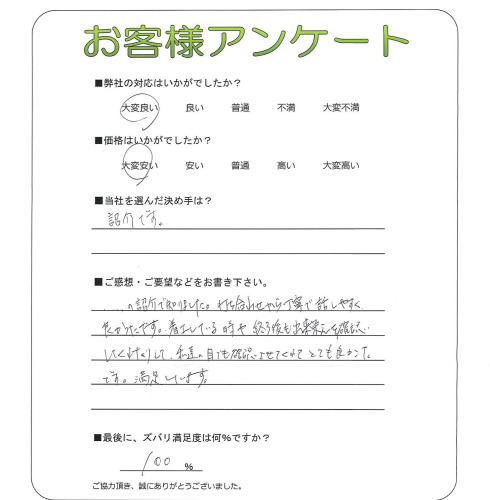 お客様アンケート
■弊社の対応はいかがでしたか？
大変良い 良い 普通 不満 大変不満
■価格はいかがでしたか？
大変安い 安い 普通 高い 大変高い
■当社を選んだ決め手は？
紹介です。
■ご感想・ご要望などをお書き下さい。
の紹介で知りました。打ち合わせから丁寧で話しやすく
良かったです。着工している時や終了後も出来栄えを確認
してくれたりして、私達の目でも確認させてくれてとても良かった
です。満足しています。
■最後に、ズバリ満足度は何％ですか？
100 ％
ご協力頂き、誠にありがとうございました。